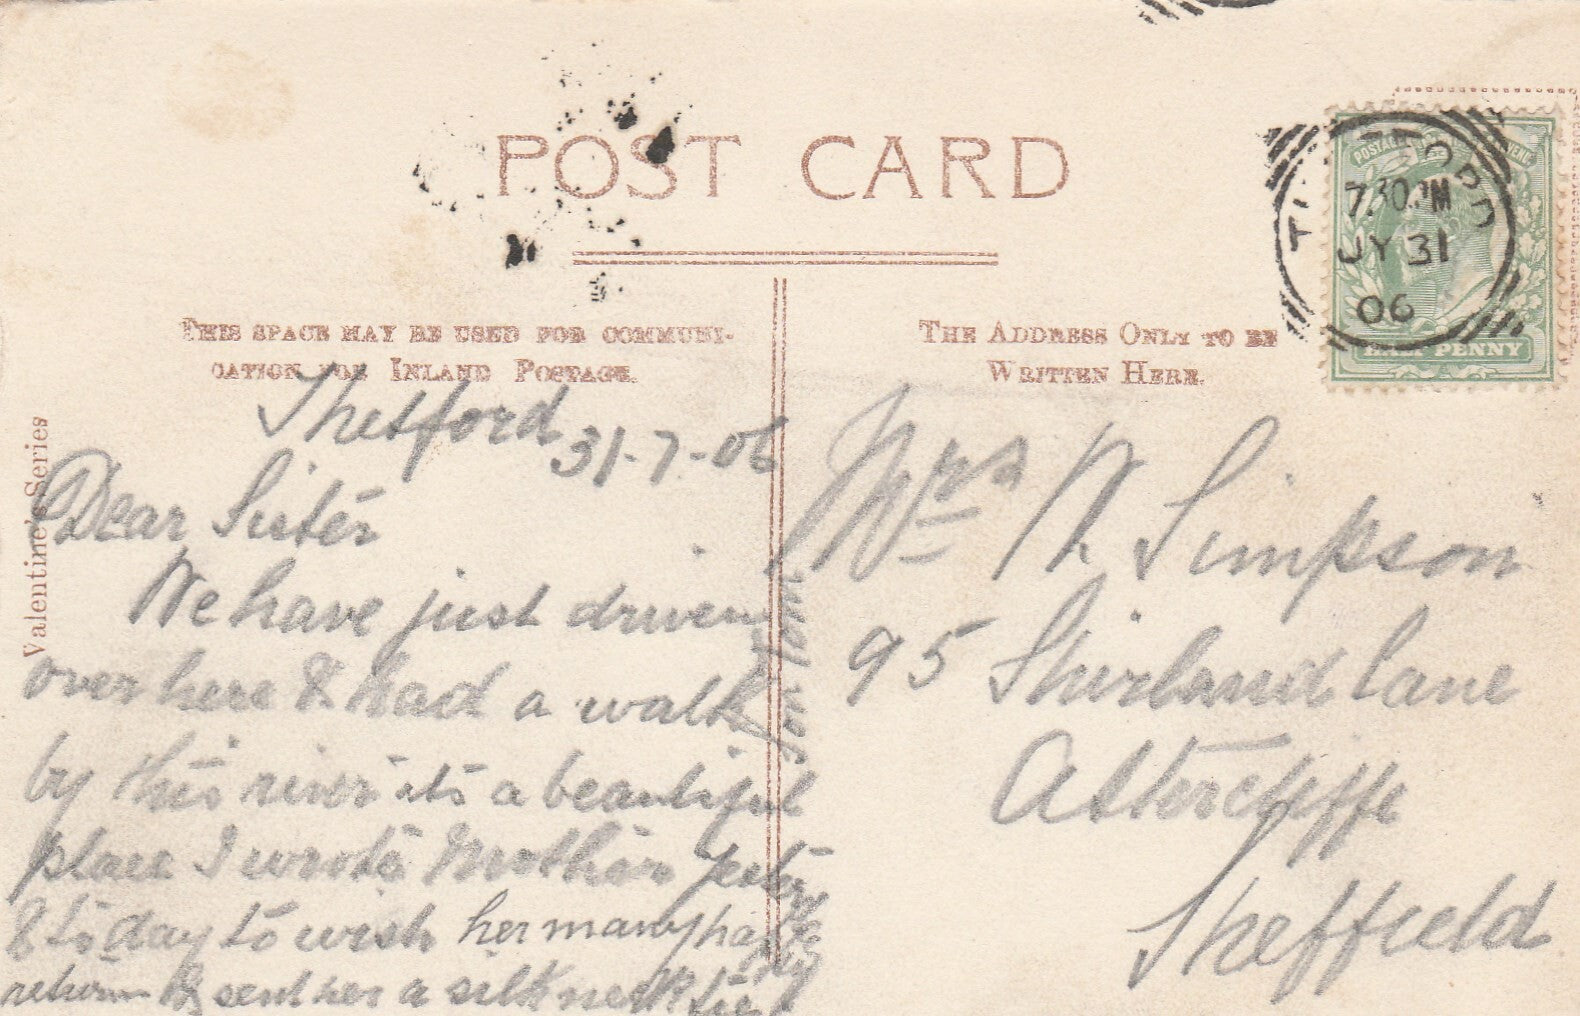 POST CARD
THIS SPACE MAY BE USED FOR COMMUNI-
CATION FOR INLAND POSTAGE.
THE ADDRESS ONLY TO BE
WRITTEN HERE.
Valentine's Series
THETFORD
7.30 PM
JY 31
06
POSTAGE REVENUE
HALF PENNY
Thetford 31-7-06
Dear Sister
We have just driven
over here & had a walk
by this river its a beautiful
place I wrote Mother
& to day to wish her many happy
return & sent her a silk neck tie
Mrs W Simpson
95 Shirland Lane
Attercliffe
Sheffield